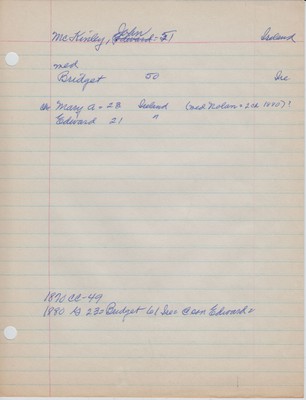 McKinley, John Edward - 51 Ireland
med
Bridget 50 Ire
ch- Mary A - 23 Ireland (med Nolan - 2ch 1880)!
Edward 21 "
1870 CC-49
1880 23 = Bridget 61 Ire @ son Edward